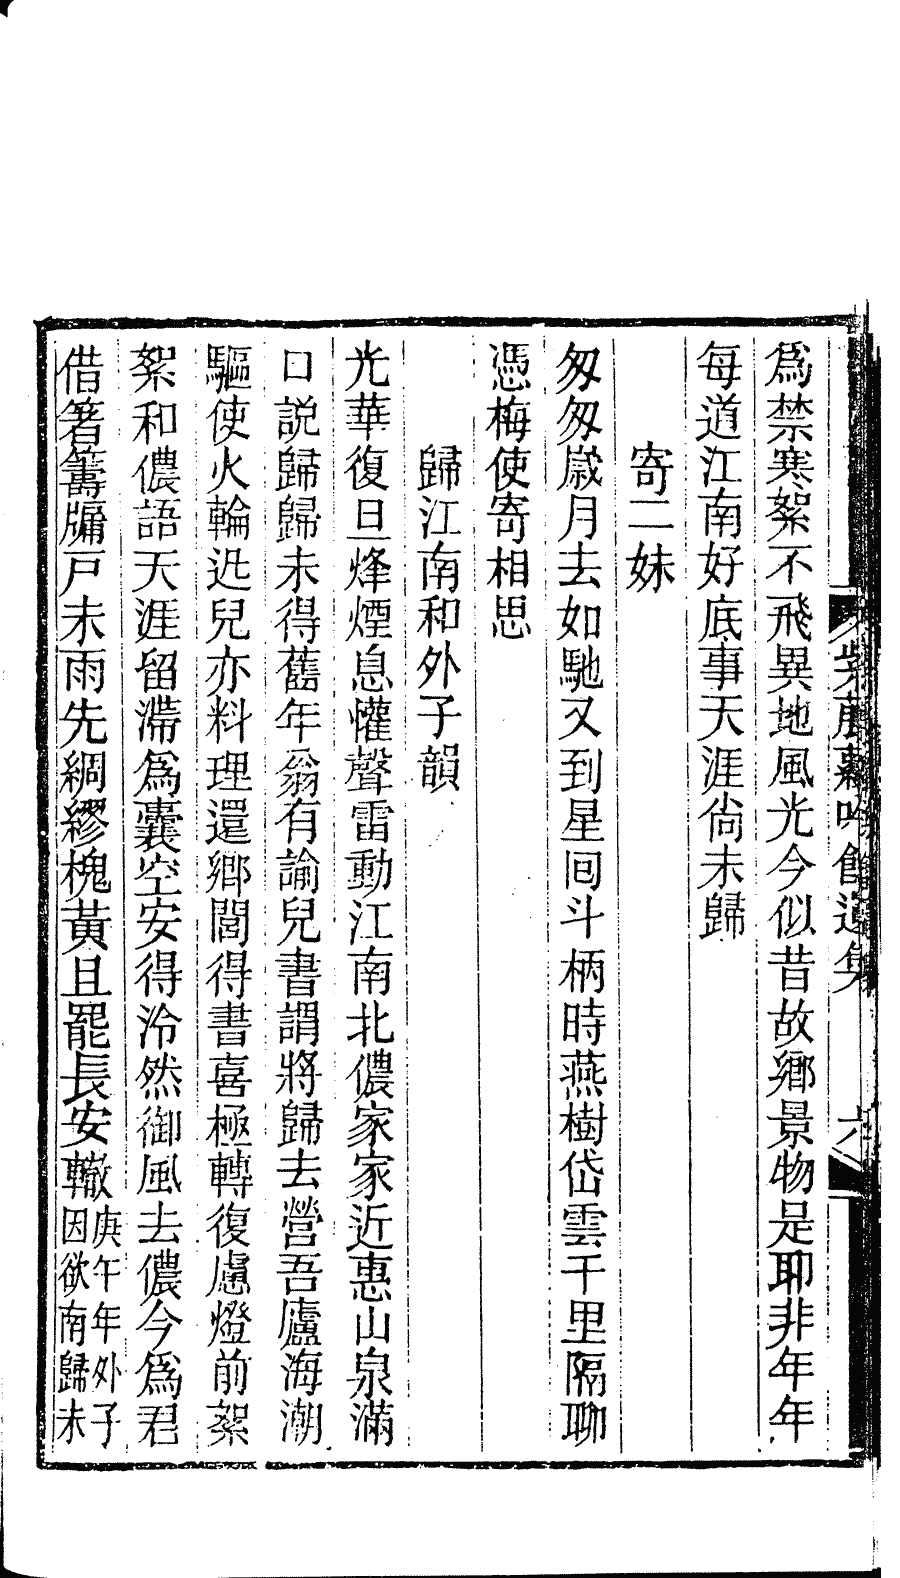 爲禁寒絮不飛異地風光今似昔故鄉景物是耶非年年
每道江南好底事天涯尙未歸
寄二妹
匆匆歲月去如馳又到星回斗柄時燕樹岱雲千里隔聊
憑梅使寄相思
歸江南和外子韻
光華復旦烽煙息懽聲雷動江南北儂家家近惠山泉滿
口說歸歸未得舊年翁有諭兒書謂將歸去營吾廬海潮
驅使火輪迅兒亦料理還鄉閭得書喜極轉復慮燈前絮
絮和儂語天涯留滯爲囊空安得泠然御風去儂今爲君
借箸籌牖戶未雨先綢繆槐黃且罷長安轍
庚午年外子
因欲南歸未